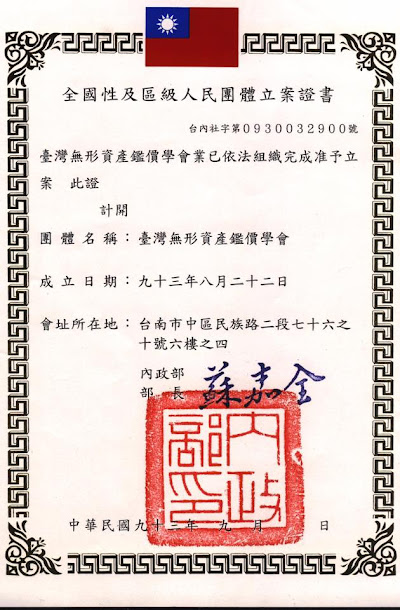 全國性及區級人民團體立案證書
台內社字第0930032900號
臺灣無形資產鑑價學會業已依法組織完成准予立
案　此證
計開
團體名稱：臺灣無形資產鑑價學會
成立日期：九十三年八月二十二日
會址所在地：台南市中區民族路二段七十六之
十號六樓之四
內政部
部長 蘇嘉全
內政部印
中華民國九十三年 九 月 日